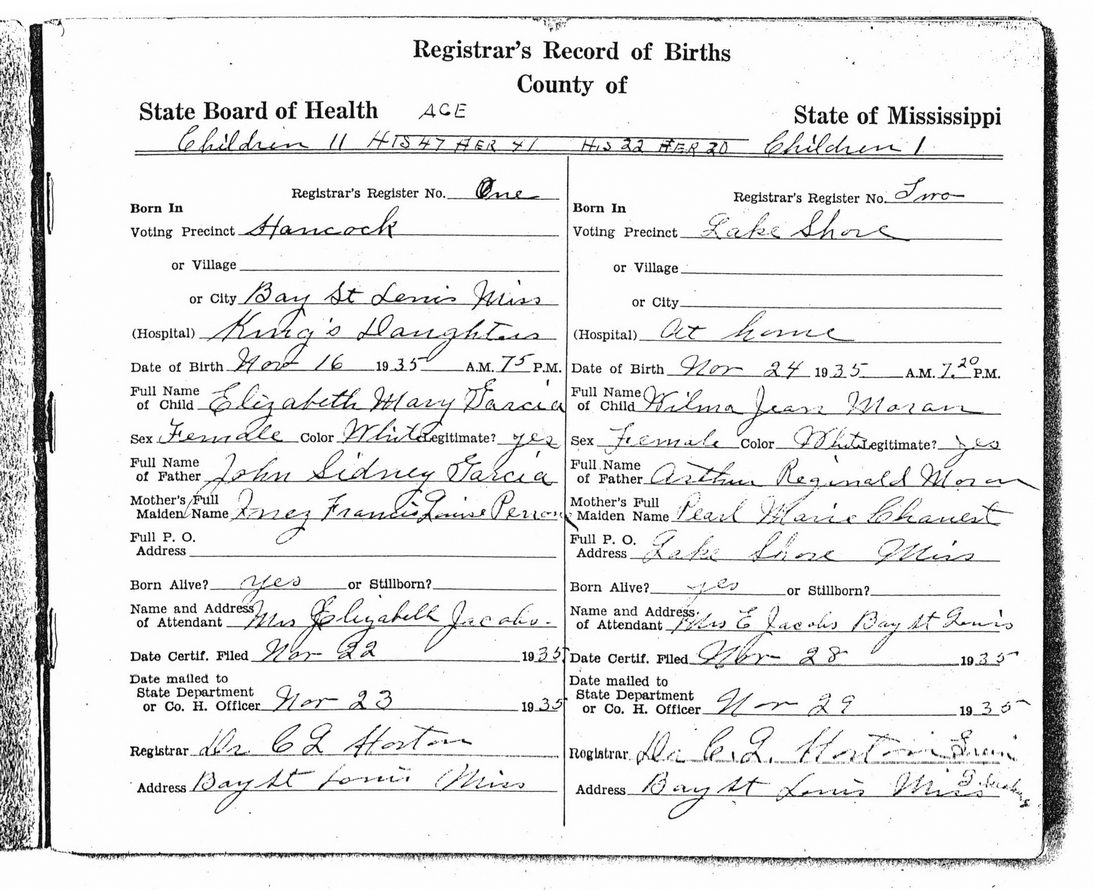 Registrar's Record of Births
County of
State Board of Health AGE State of Mississippi
Children 11 HIS 47 HER 41 HIS 22 HER 20 Children 1
Registrar's Register No. One
Born In
Voting Precinct Hancock
or Village
or City Bay St Louis Miss
(Hospital) King's Daughters
Date of Birth Nov 16 1935 A.M. 7 5 P.M.
Full Name
of Child Elizabeth Mary Garcia
Sex Female Color White Legitimate? yes
Full Name
of Father John Sidney Garcia
Mother's Full
Maiden Name Inez Francis Louise
Full P. O.
Address
Born Alive? yes or Stillborn?
Name and Address
of Attendant Mrs Elizabeth Jacobs.
Date Certif. Filed Nov 22 1935
Date mailed to
State Department
or Co. H. Officer Nov 23 1935
Registrar Dr C Horton
Address Bay St Louis Miss
Registrar's Register No. Two
Born In
Voting Precinct Lake Shore
or Village
or City
(Hospital) At home
Date of Birth Nov 24 1935 A.M. 7.20 P.M.
Full Name
of Child Wilma Jean Moran
Sex Female Color White Legitimate? yes
Full Name
of Father Arthur Reginald Moran
Mother's Full
Maiden Name Pearl Marie
Full P. O.
Address Lake Shore Miss
Born Alive? yes or Stillborn?
Name and Address
of Attendant Mrs E Jacobs Bay St Louis
Date Certif. Filed Nov 28 1935
Date mailed to
State Department
or Co. H. Officer Nov 29 1935
Registrar Dr C. Horton
Address Bay St Louis Miss